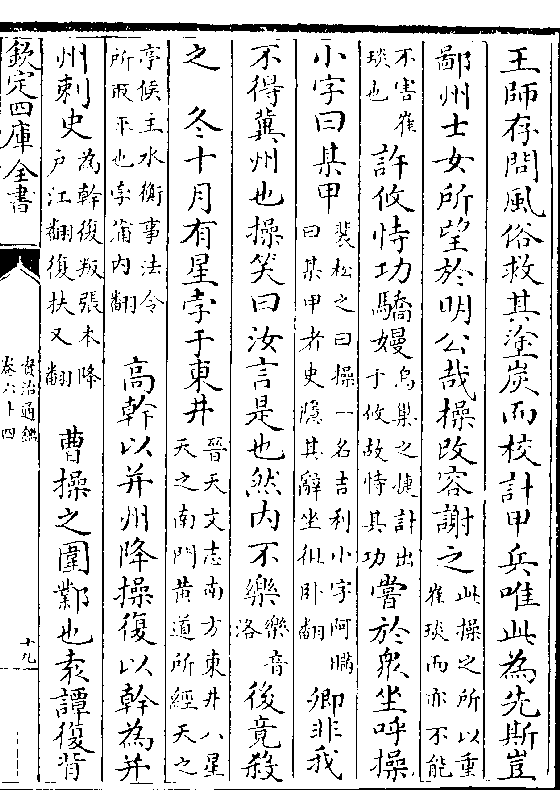 王師存問風俗救其塗炭而校計甲兵唯此為先斯豈
鄙州士女所望於明公哉操改容謝之此操之所以重崔琰而亦不能
不害崔琰也許攸恃功驕嫚烏巢之捷計出于攸故恃其功嘗於衆坐呼操
小字曰某甲裴松之曰操一名吉利小字阿瞞曰某甲者史隠其辭坐徂卧翻卿非我
不得冀州也操笑曰汝言是也然内不樂樂音洛後竟殺
之 冬十月有星孛于東井晉天文志南方東井八星天之南門黄道所經天之
亭候主水衡事法令所取平也孛蒲内翻 高幹以并州降操復以幹為并
州刺史為幹復叛張本降户江翻復扶又翻 曹操之圍鄴也袁譚復背
欽定四庫全書
資治通鑑
卷六十四
十九